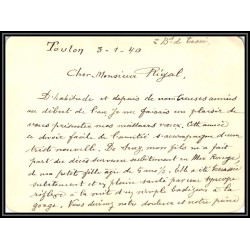 2 Bd de
Toulon 3-1-40
Cher Monsieur Rigal,
D'habitude et depuis de nombreuses années
au début de l'an je me faisais un plaisir de
vous présenter mes meilleurs vœux. Cette année
ce devoir facile de l'amitié s'accompagne d'une
triste nouvelle. De Suez mon fils m'a fait
part du décès survenu subitement en Mer Rouge,
d'ma petite fille âgée de 5 ans ½. Elle a été
subitement et en pleine santé par une syncope
réflexe à la suite d'un simple badigeon à la
gorge. Vous devinez notre douleur et notre peine